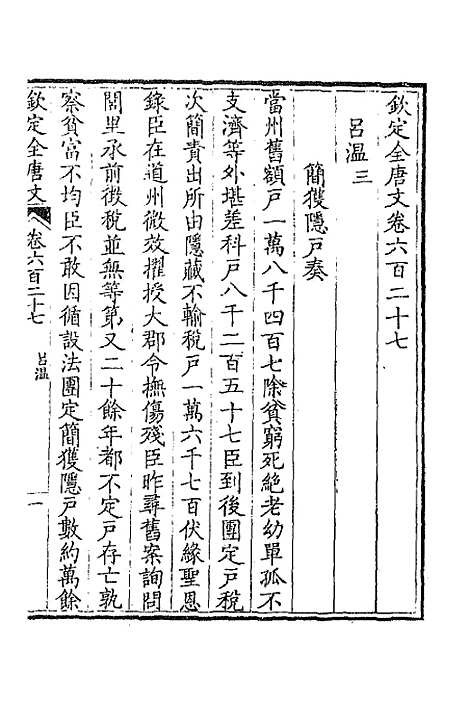 欽定全唐文卷六百二十七
呂溫三
簡獲隱戶奏
當州舊額戶一萬八千四百七除貧窮死絕老幼單孤不
支濟等外堪差科戶八千二百五十七臣到後團定戶稅
次簡責出所由隱藏不輸稅戶一萬六千七百伏緣聖恩
錄臣在道州微效擢授大郡令撫傷殘臣昨尋舊案詢問
閭里承前徵稅並無等第又二十餘年都不定戶存亡孰
察貧富不均臣不敢因循設法團定簡獲隱戶數約萬餘
欽定全唐文 卷六百二十七 呂溫 一